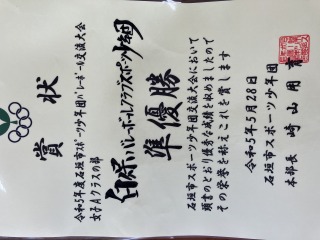 賞状
令和5年度石垣市スポーツ少年団バレーボール交流大会
女子Aクラスの部
準優勝
石垣市スポーツ少年団交流大会において
頭書のとおり優秀な成績を収めましたので
その栄誉を称えこれを賞します
令和5年5月28日
石垣市スポーツ少年団
本部長 﨑山用